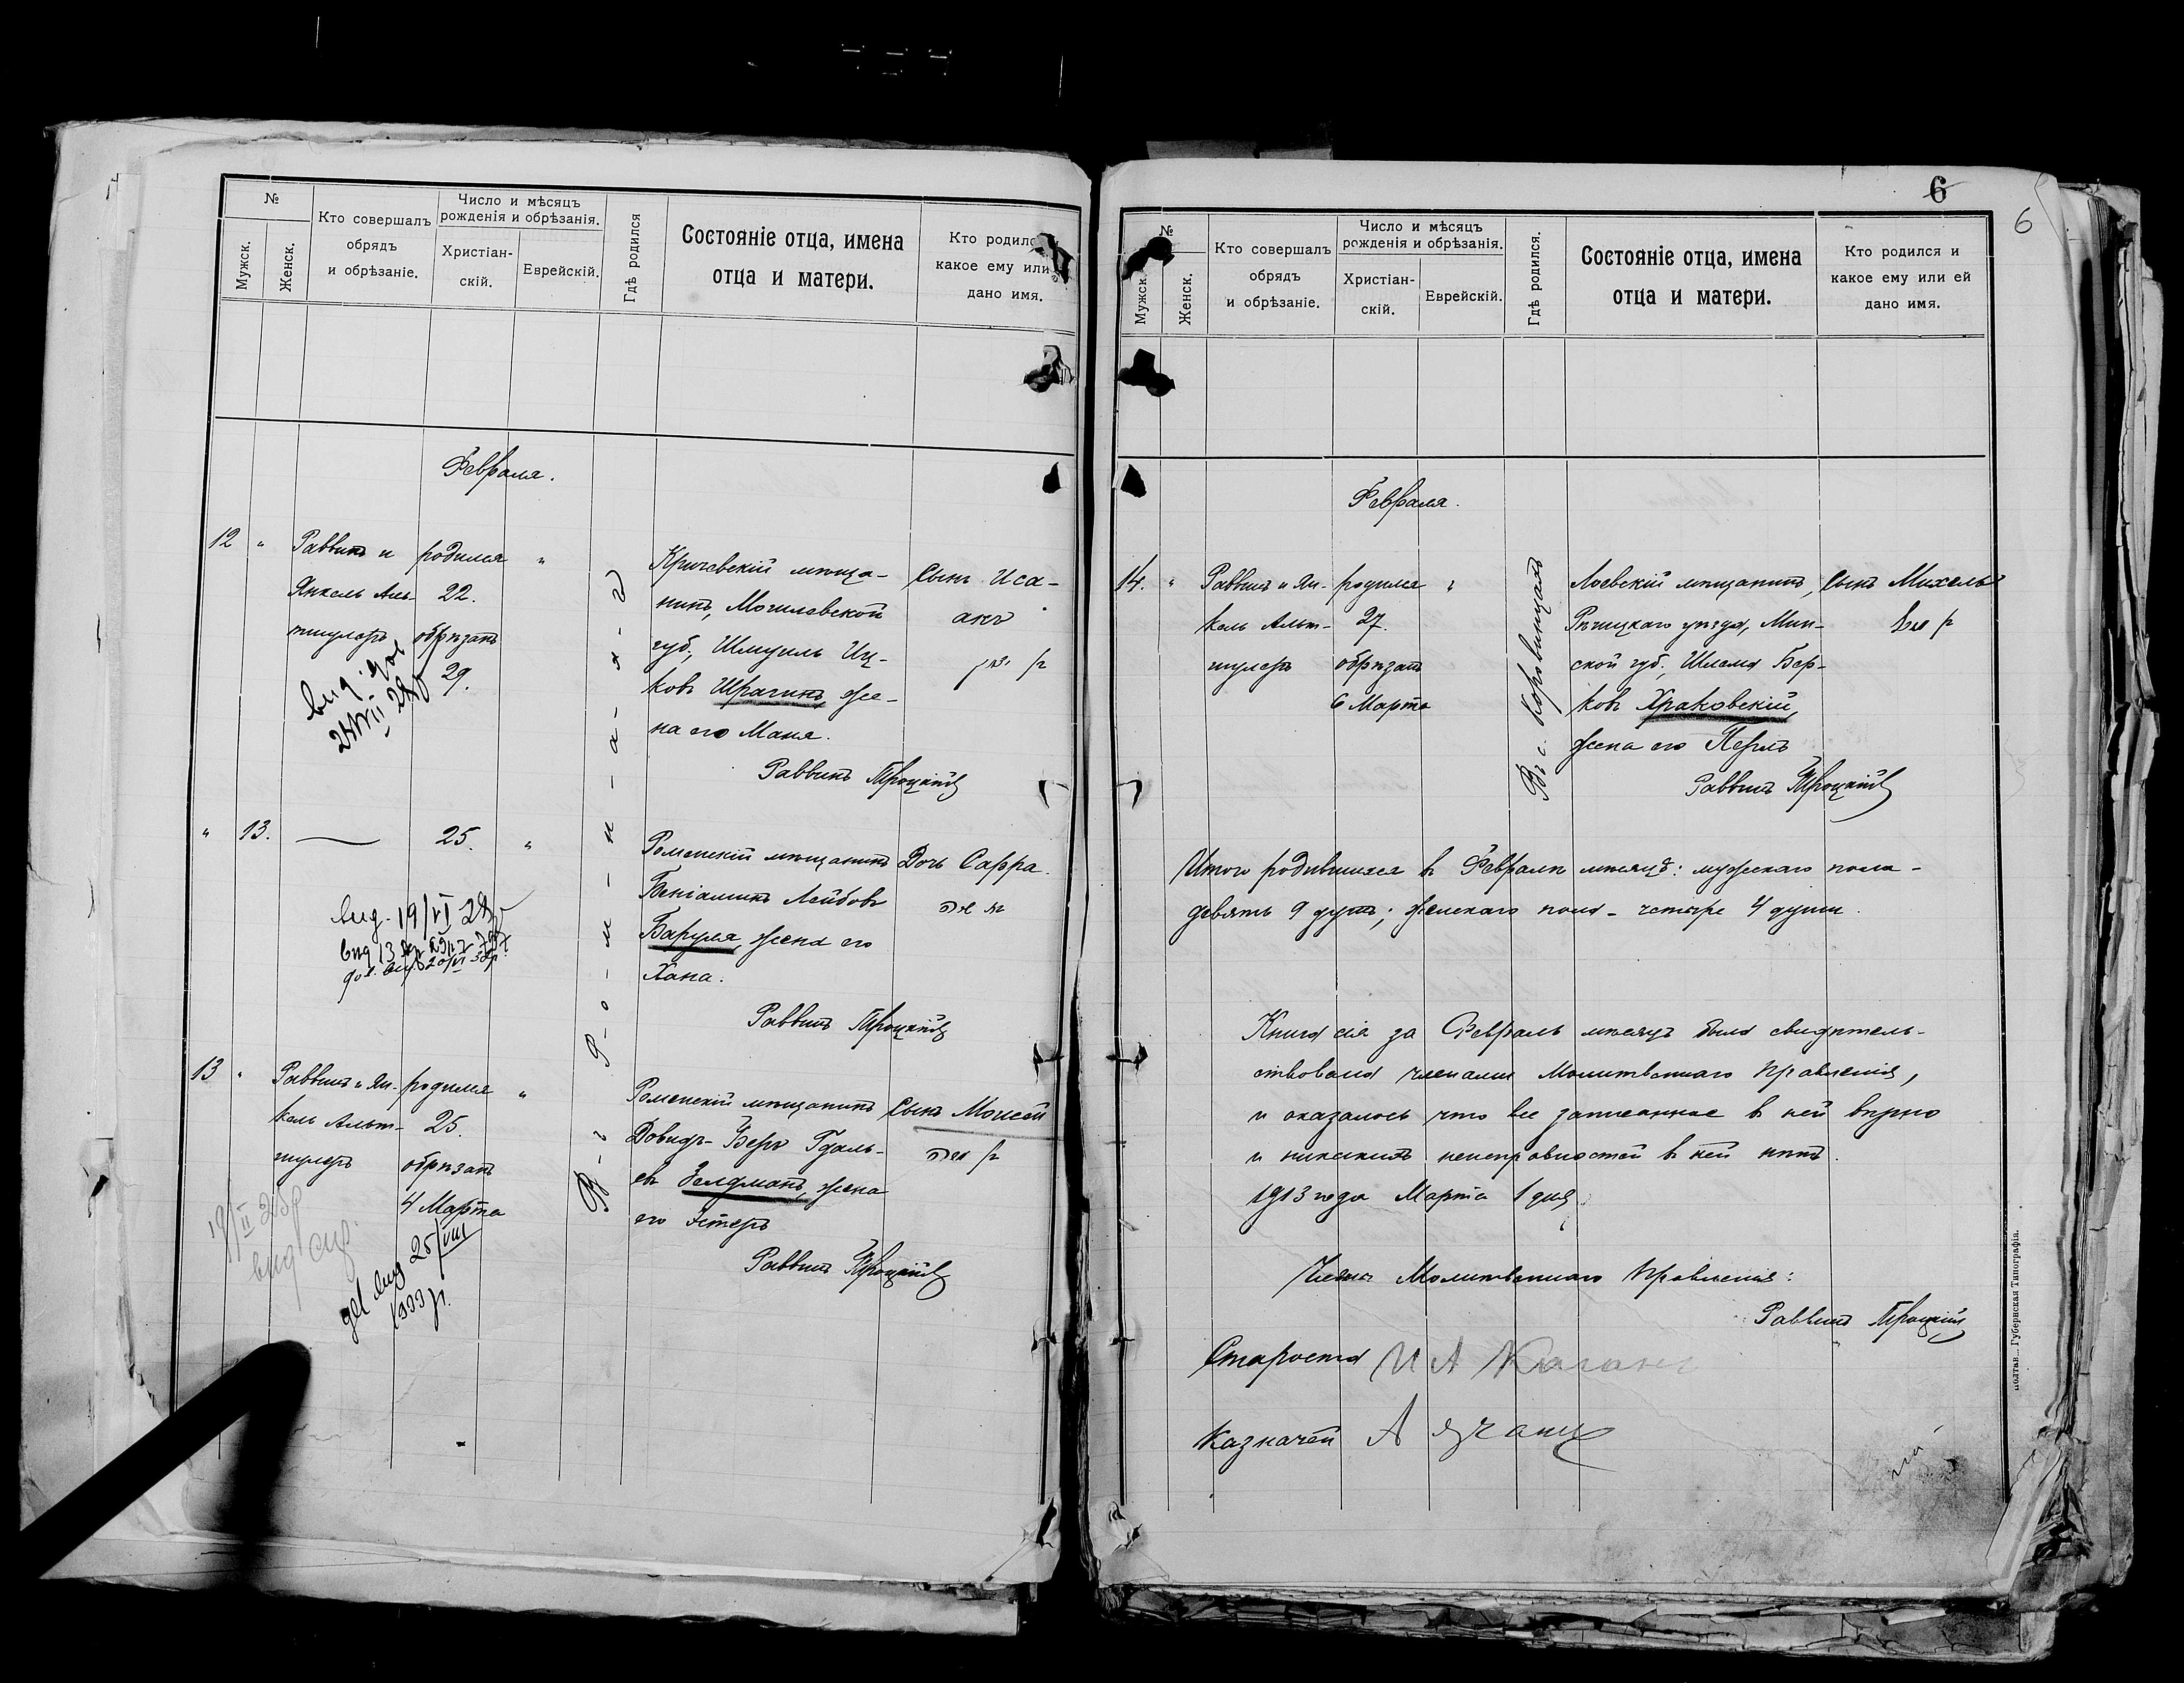 №
Мужск.
Женск.
Кто совершалъ
обрядъ
и обрѣзаніе.
Число и мѣсяцъ
рожденія и обрѣзанія.
Христіан-
скій.
Еврейскій.
Гдѣ родился
Состояніе отца, имена
отца и матери.
Кто родился
какое ему или
дано имя.
Февраля.
12 "
Раввинъ и
Янкель Аль-
тшулеръ
родился
22.
обрѣзанъ
29.
"
Кричевскій мѣща-
нинъ, Могилевской
губ., Шмуилъ Иц-
ковъ Шрагинъ, же-
на его Маня.
Сынъ Иса-
акъ
Раввинъ Троцкій
" 13.
25.
"
Роменскій мѣщанинъ
Беніаминъ Лейбовъ
Баруля, жена его
Хана.
Дочь Сарра.
выд. 19/VI
Раввинъ Троцкій
13 "
Раввинъ и Ян-
кель Альт-
шулеръ
родился
25.
обрѣзанъ
4 Марта
"
Роменскій мѣщанинъ
Довидъ-Беръ Гдаль-
евъ Зелдманъ, жена
его Эстеръ
Сынъ Моисей
25/VIII
1933 г.
Раввинъ Троцкій
В-ъ Р-о-м-н-а-х-ъ
6
6
№
Мужск.
Женск.
Кто совершалъ
обрядъ
и обрѣзаніе.
Число и мѣсяцъ
рожденія и обрѣзанія.
Христіан-
скій.
Еврейскій.
Гдѣ родился.
Состояніе отца, имена
отца и матери.
Кто родился и
какое ему или ей
дано имя.
Февраля.
14. "
Раввинъ и Ян-
кель Альт-
шулеръ
родился
27.
обрѣзанъ
6 Марта
"
Въ с. Коровинцахъ
Лоевскій мѣщанинъ,
Рѣчицкаго уѣзда, Мин-
ской губ., Шлема Бер-
ковъ Храковскій,
жена его Перль
Сынъ Михель
Раввинъ Троцкій
Итого родившихся въ Февралѣ мѣсяцѣ: мужскаго пола -
девять 9 душъ; женскаго пола - четыре 4 души.
Книга сія за Февраль мѣсяцъ была свидѣтель-
ствована членами Молитвеннаго Правленія,
и оказалось что все записанное въ ней вѣрно
и никакихъ неисправностей въ ней нѣтъ.
1913 года Марта 1 дня.
Члены Молитвеннаго Правленія:
Раввинъ Троцкій
Староста И А Каганъ
Казначей А
Губернская Типографія.